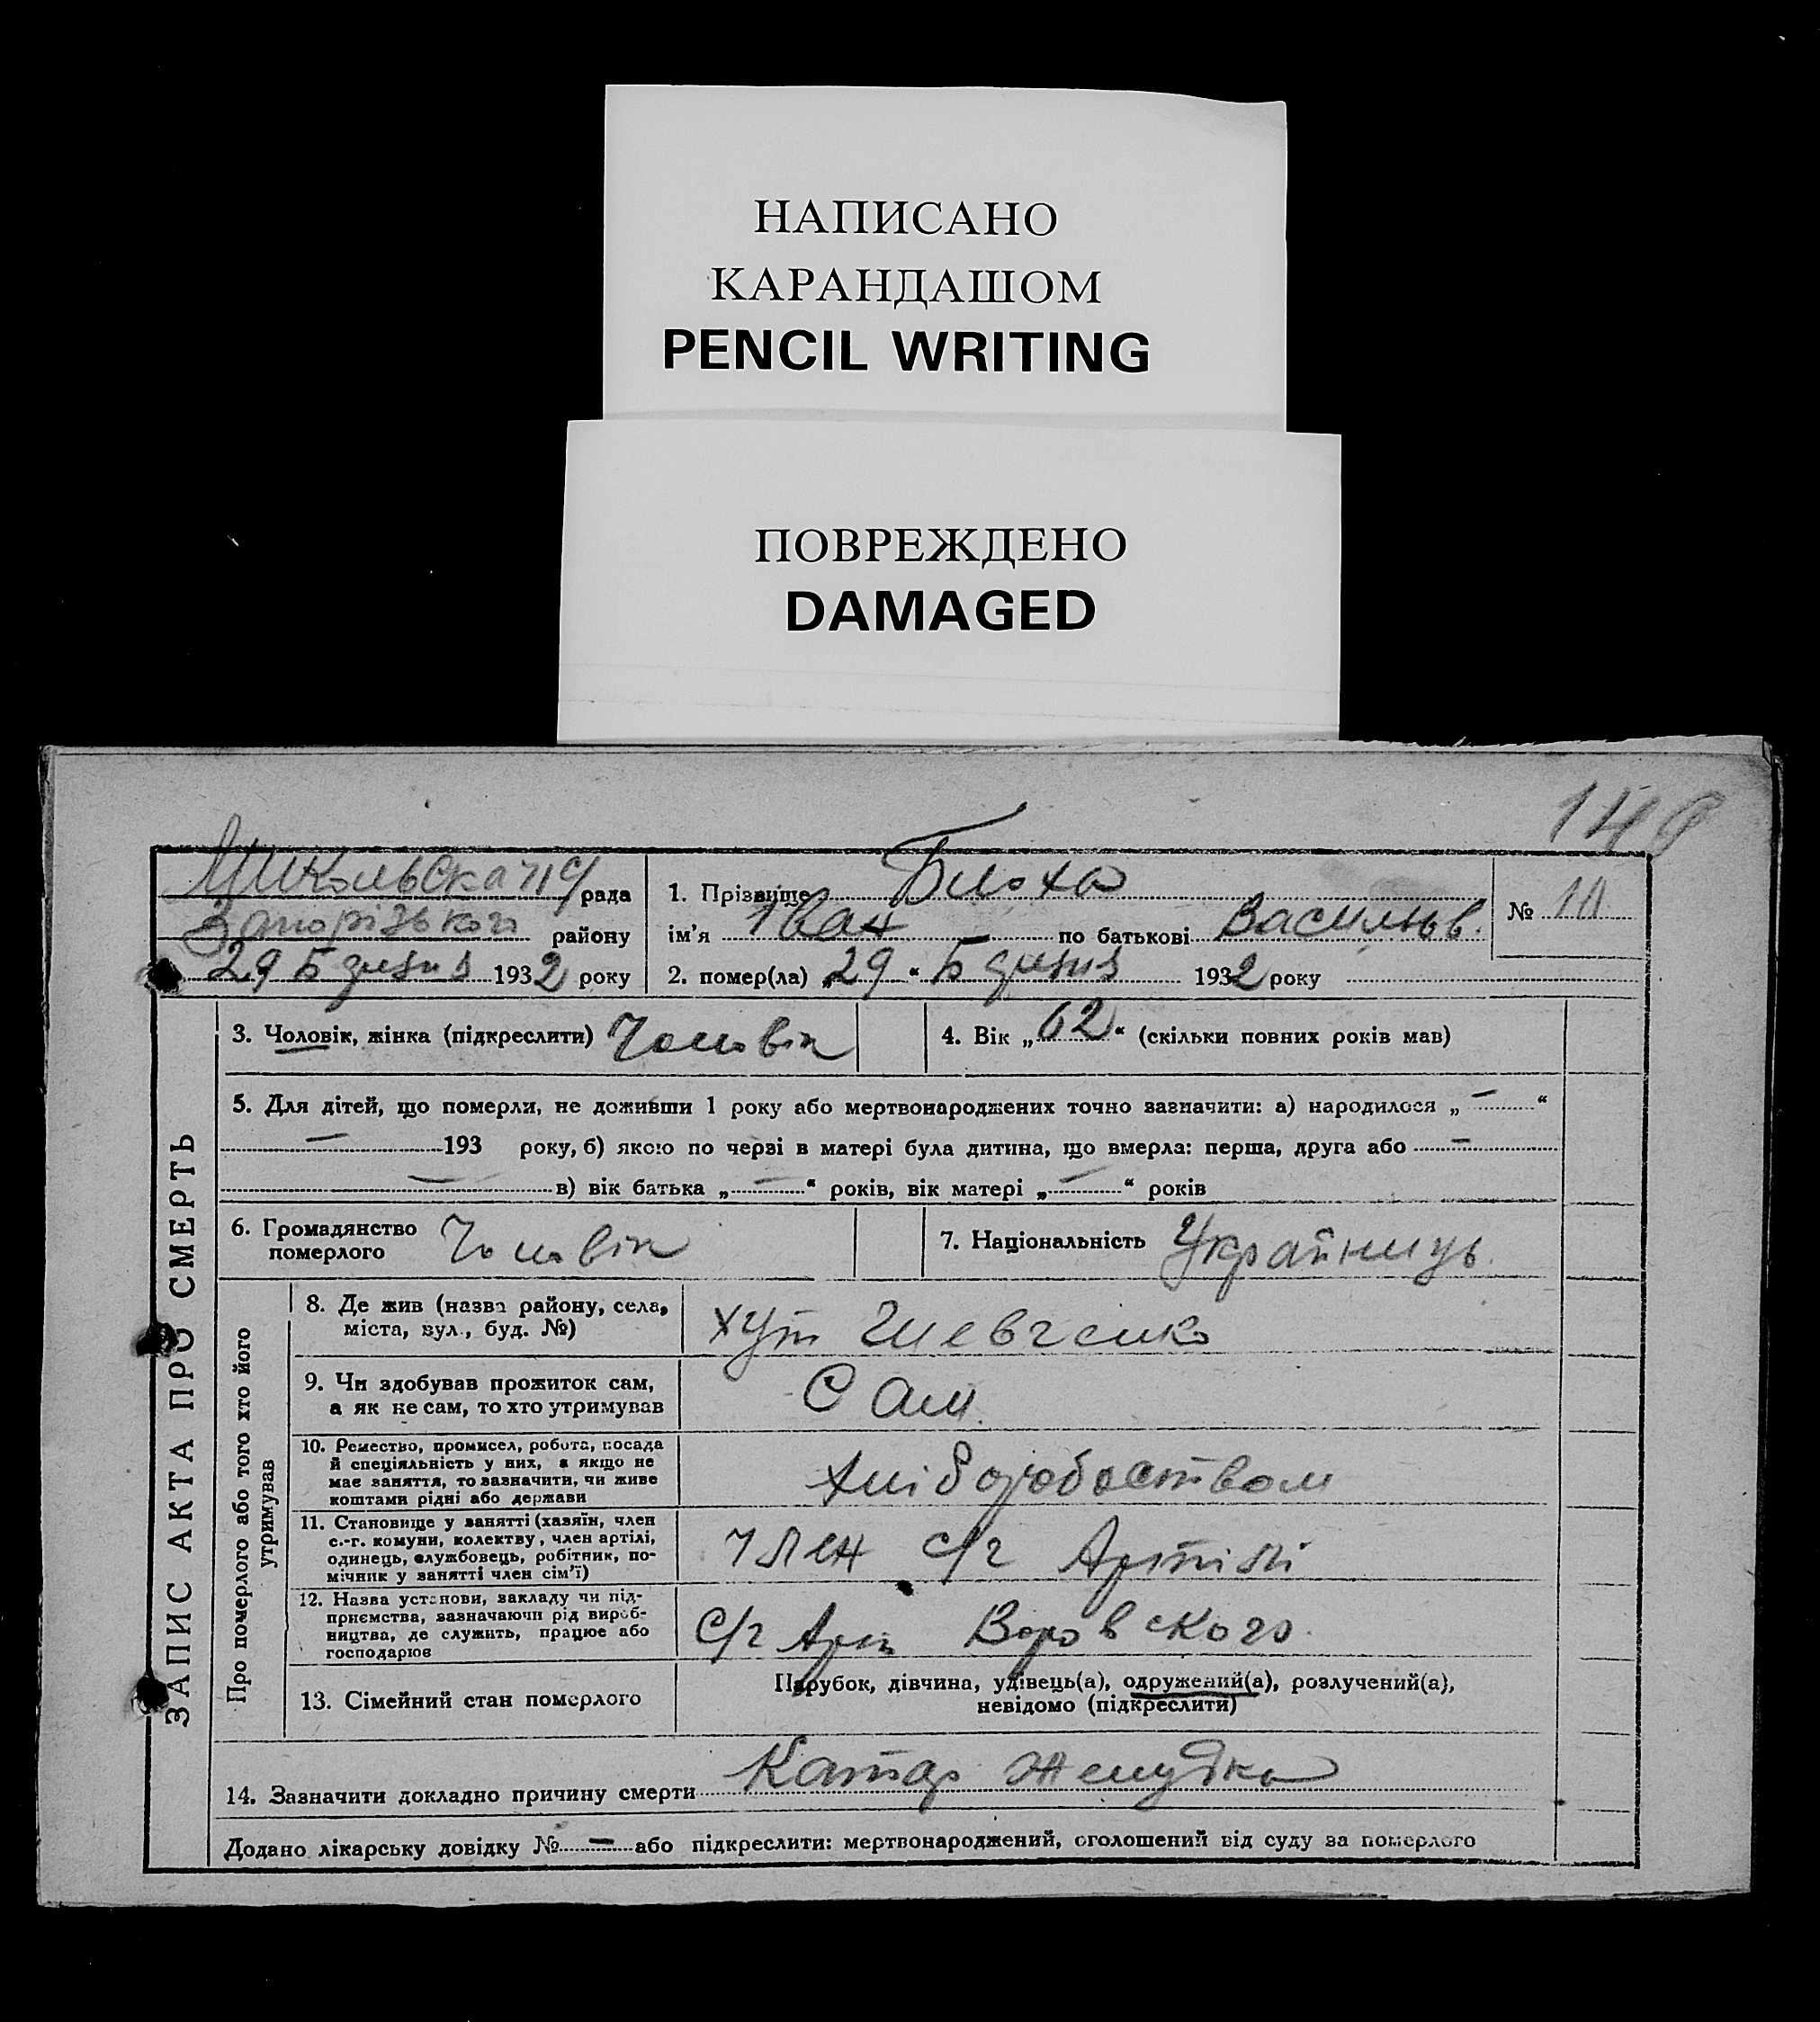 НАПИСАНО
КАРАНДАШОМ
PENCIL WRITING
ПОВРЕЖДЕНО
DAMAGED
рада
Запорізького району
29 Б 1932 року
1. Прізвище Блоха
ім'я Іван по батькові Васильов.
№ 10
2. помер(ла) „29“ Б 1932 року
3. Чоловік, жінка (підкреслити) Чоловік
4. Вік „62“ (скільки повних років мав)
5. Для дітей, що померли, не доживши 1 року або мертвонароджених точно зазначити: а) народилося „ — “
— 193 року, б) якою по черзі в матері була дитина, що вмерла: перша, друга або —
— в) вік батька „ — “ років, вік матері „ — “ років
6. Громадянство
померлого Чоловік
7. Національність Україниць.
ЗАПИС АКТА ПРО СМЕРТЬ
Про померлого або того хто його
утримував
8. Де жив (назва району, села,
міста, вул., буд. №) хут Шевченко
9. Чи здобував прожиток сам,
а як не сам, то хто утримував Сам.
10. Ремество, промисел, робота, посада
й спеціяльність у них, а якщо не
має заняття, то зазначити, чи живе
коштами рідні або держави
11. Становище у занятті (хазяїн, член
с.-г. комуни, колективу, член артілі,
одинець, службовець, робітник, по-
мічник у занятті член сім'ї)
член с/г Артілі
12. Назва установи, закладу чи під-
приємства, зазначаючи рід вироб-
ництва, де служить, працює або
господарює
С/г Арт Воровского.
13. Сімейний стан померлого
Парубок, дівчина, удівець(а), одружений(а), розлучений(а),
невідомо (підкреслити)
14. Зазначити докладно причину смерти Катар желудка
Додано лікарську довідку № — або підкреслити: мертвонароджений, оголошений від суду за померлого